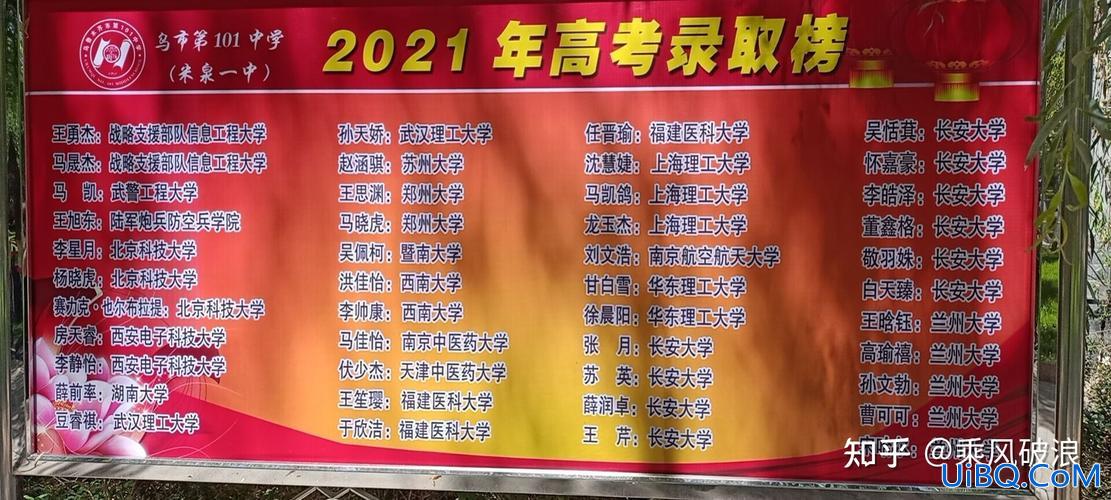 乌市第101中学
(米泉一中)
2021年高考录取榜
王勇杰：战略支援部队信息工程大学
马晟杰：战略支援部队信息工程大学
马 凯：武警工程大学
王旭东：陆军炮兵防空兵学院
李星月：北京科技大学
杨晓虎：北京科技大学
赛力克·也尔布拉提：北京科技大学
房天睿：西安电子科技大学
李静怡：西安电子科技大学
薛前率：湖南大学
豆睿祺：武汉理工大学
孙天娇：武汉理工大学
赵涵骐：苏州大学
王思渊：郑州大学
马晓虎：郑州大学
吴佩柯：暨南大学
洪佳怡：西南大学
李帅康：西南大学
马佳怡：南京中医药大学
伏少杰：天津中医药大学
王笙璎：福建医科大学
于欣洁：福建医科大学
任晋瑜：福建医科大学
沈慧婕：上海理工大学
马凯鸽：上海理工大学
龙玉杰：上海理工大学
刘文浩：南京航空航天大学
甘白雪：华东理工大学
徐晨阳：华东理工大学
张 月：长安大学
苏 英：长安大学
薛润卓：长安大学
王 芹：长安大学
吴恬萁：长安大学
怀嘉豪：长安大学
李皓泽：长安大学
董鑫格：长安大学
敬羽姝：长安大学
白天臻：长安大学
王晗钰：兰州大学
高瑜禧：兰州大学
孙文勃：兰州大学
曹可可：兰州大学
知乎 @乘风破浪
UiBQ.CoM